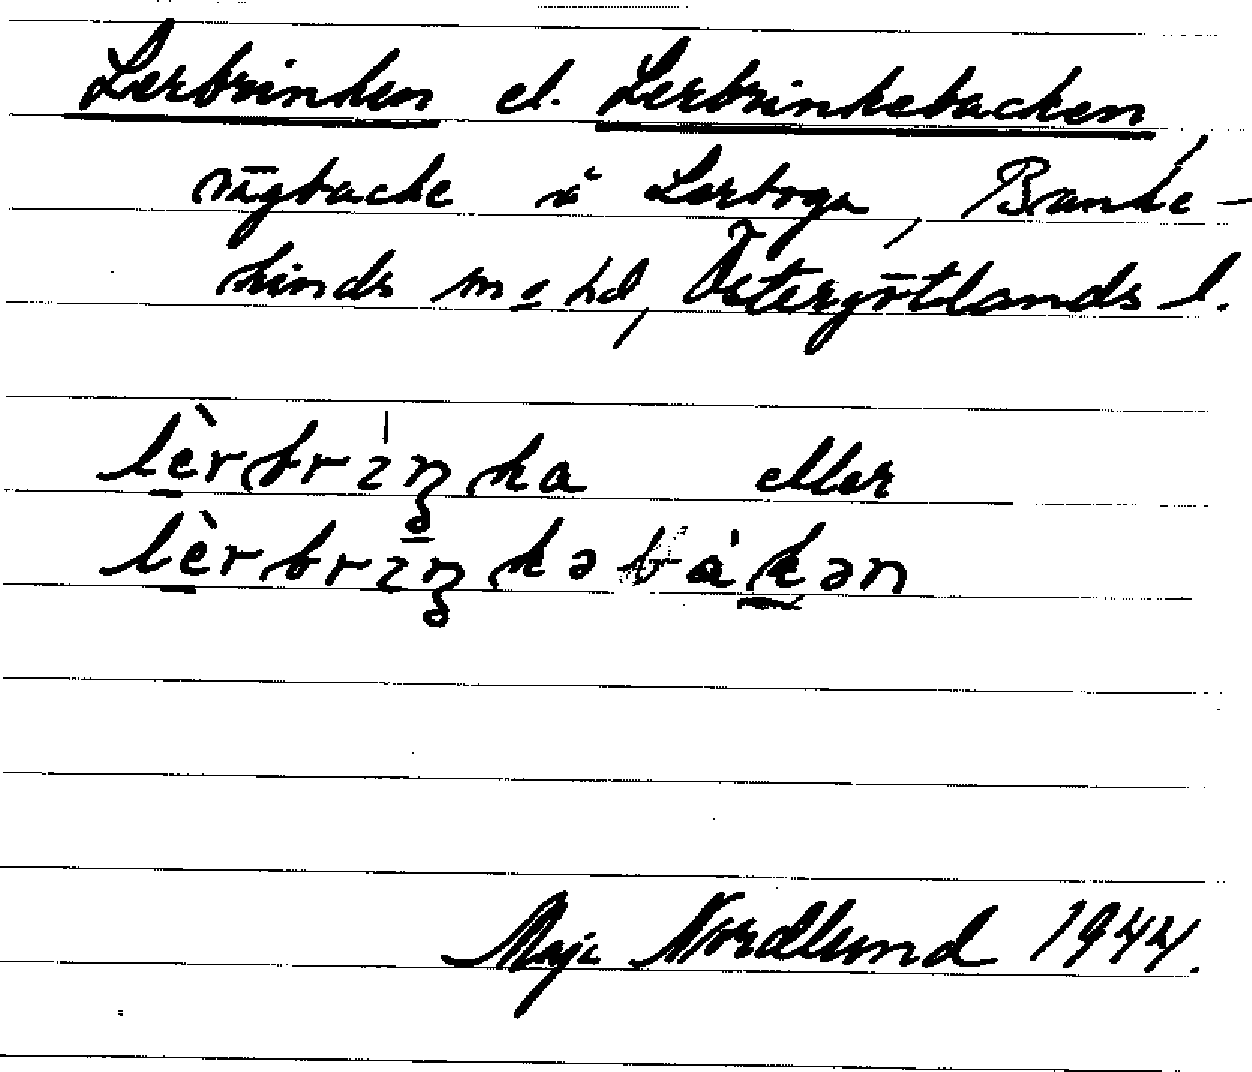 Lerbrinken el. Lerbrinkebacken,
vägbacke å Lerboga, Banke-
kinds sn o hd, Östergötlands l.
lèrbriŋka eller
lèrbriŋkəbàkən
Maja Nordlund 1944.